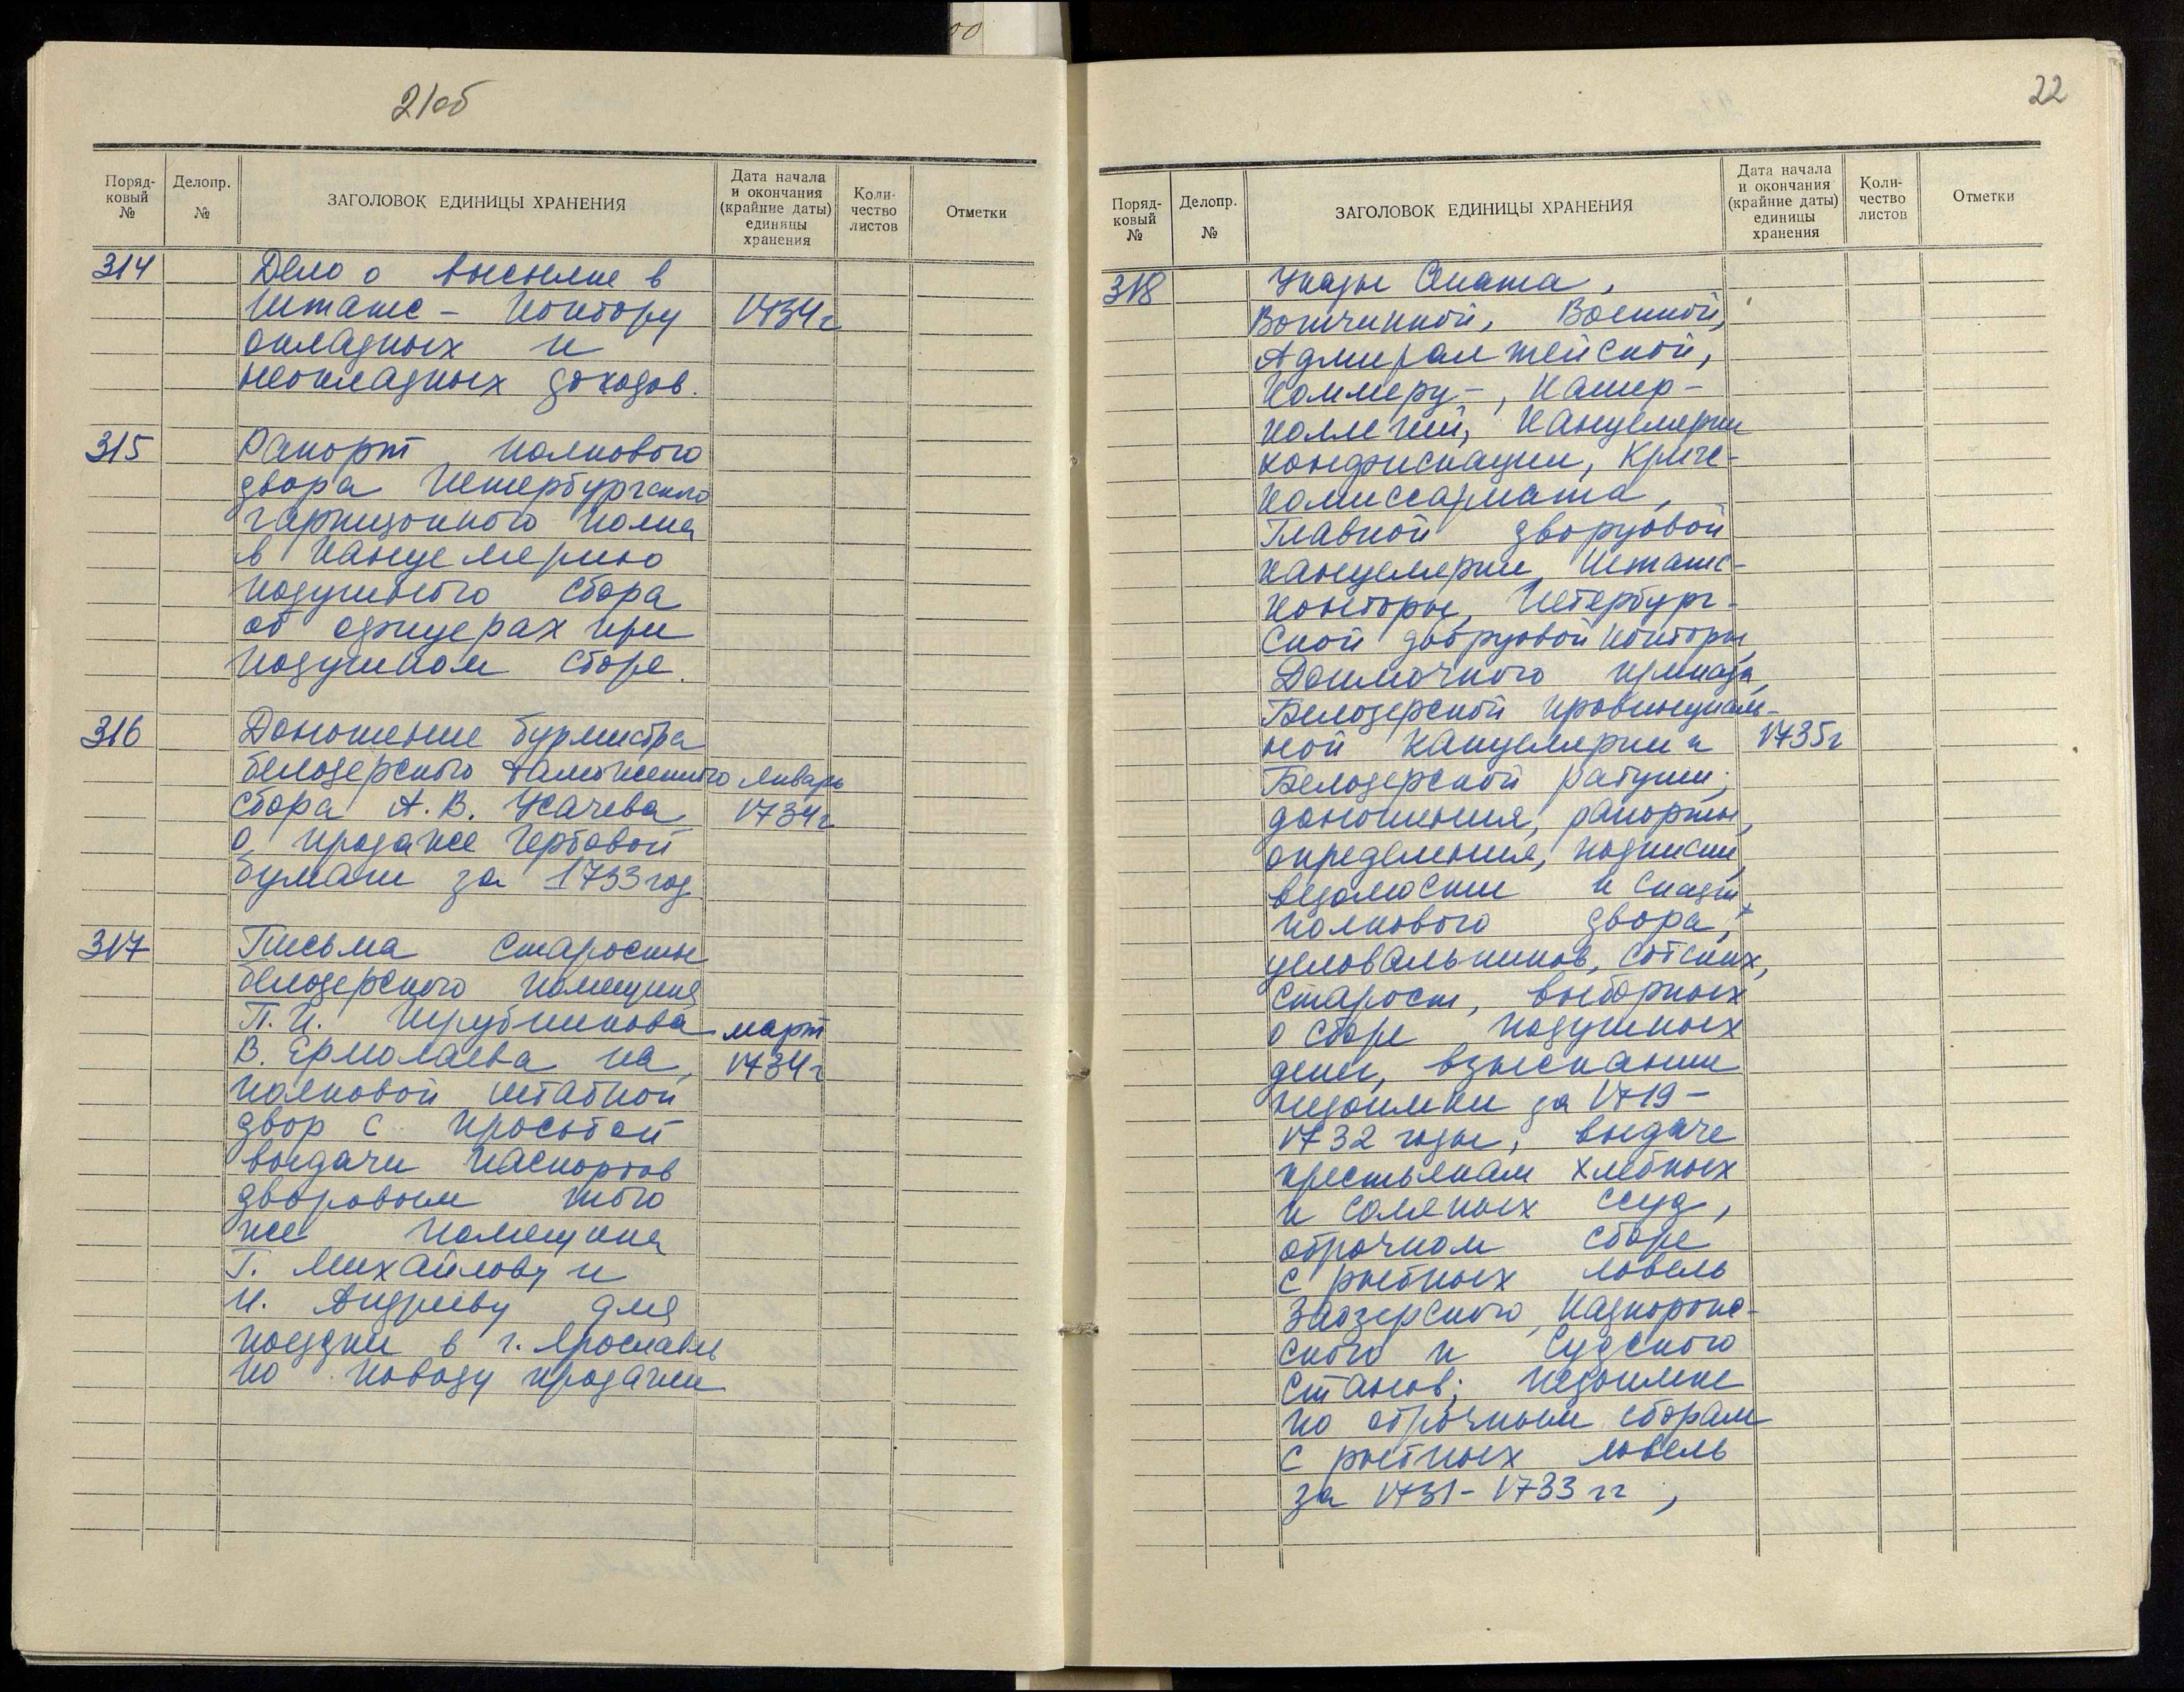 00
21об
Поряд-
ковый
№
Делопр.
№
ЗАГОЛОВОК ЕДИНИЦЫ ХРАНЕНИЯ
Дата начала
и окончания
(крайние даты)
единицы
хранения
Коли-
чество
листов
Отметки
314
Дело о высылке в
Штатс - контору 1734 г
окладных и
неокладных доходов.
315
Рапорт полкового
двора Петербургского
гарнизонного полка
в канцелярию
подушного сбора
об офицерах при
подушном сборе.
316
Доношение бурмистра
белозерского таможенного январь
сбора А. В. Усачева 1734 г
о продаже гербовой
бумаги за 1733 год
317
Письма старосты
белозерского помещика
П. И. Шрубшикова март
В. Ермолаева на 1734 г
полковой штабной
двор с просьбой
выдачи паспортов
дворовым того
же помещика
Г. Михайлову и
И. Андрееву для
поездки в г. Ярославль
по поводу продажи
22
Поряд-
ковый
№
Делопр.
№
ЗАГОЛОВОК ЕДИНИЦЫ ХРАНЕНИЯ
Дата начала
и окончания
(крайние даты)
единицы
хранения
Коли-
чество
листов
Отметки
318
Указы Сената,
Вотчинной, Военной,
Адмиралтейской,
Коммерц-, Камер-
коллегий, Канцелярии
конфискации, Кригс-
комиссариата,
Главной дворцовой
канцелярии, Штатс-
конторы, Петербург-
ской дворцовой конторы,
Доимочного приказа,
Белозерской провинциаль-
ной канцелярии и 1735 г
Белозерской ратуши;
доношения, рапорты,
определения, подписки,
ведомости и сказки
полкового двора,
целовальников, сотских,
старост, выборных
о сборе подушных
денег, взыскании
недоимки за 1719 -
1732 годы, выдаче
крестьянам хлебных
и соляных ссуд,
оброчном сборе
с рыбных ловель
Заозерского, Надпорож-
ского и Судского
станов; недоимке
по оброчным сборам
с рыбных ловель
за 1731 - 1733 гг,